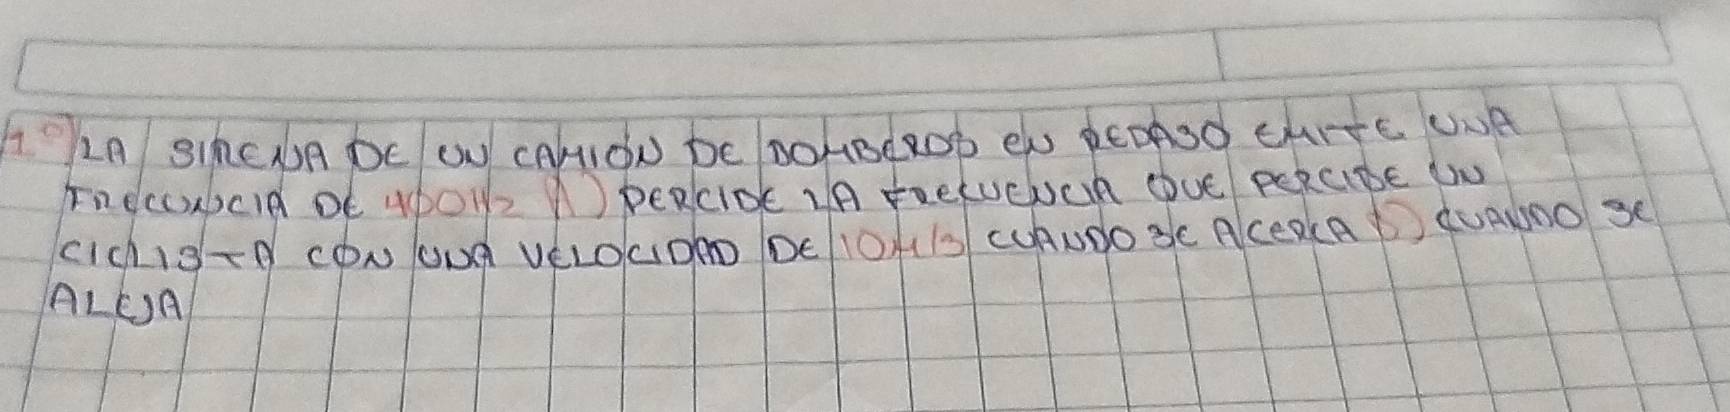 1° LA SIRENA DE UN CAMION DE BOMBEROS EN REPOSO EMITE UNA
FRECUENCIA DE 400Hz A) PERCIBE LA FRECUENCIA QUE PERCIBE UN
CICLISTA CON UNA VELOCIDAD DE 10M/S CUANDO SE ACERCA B) CUANDO SE
ALEJA